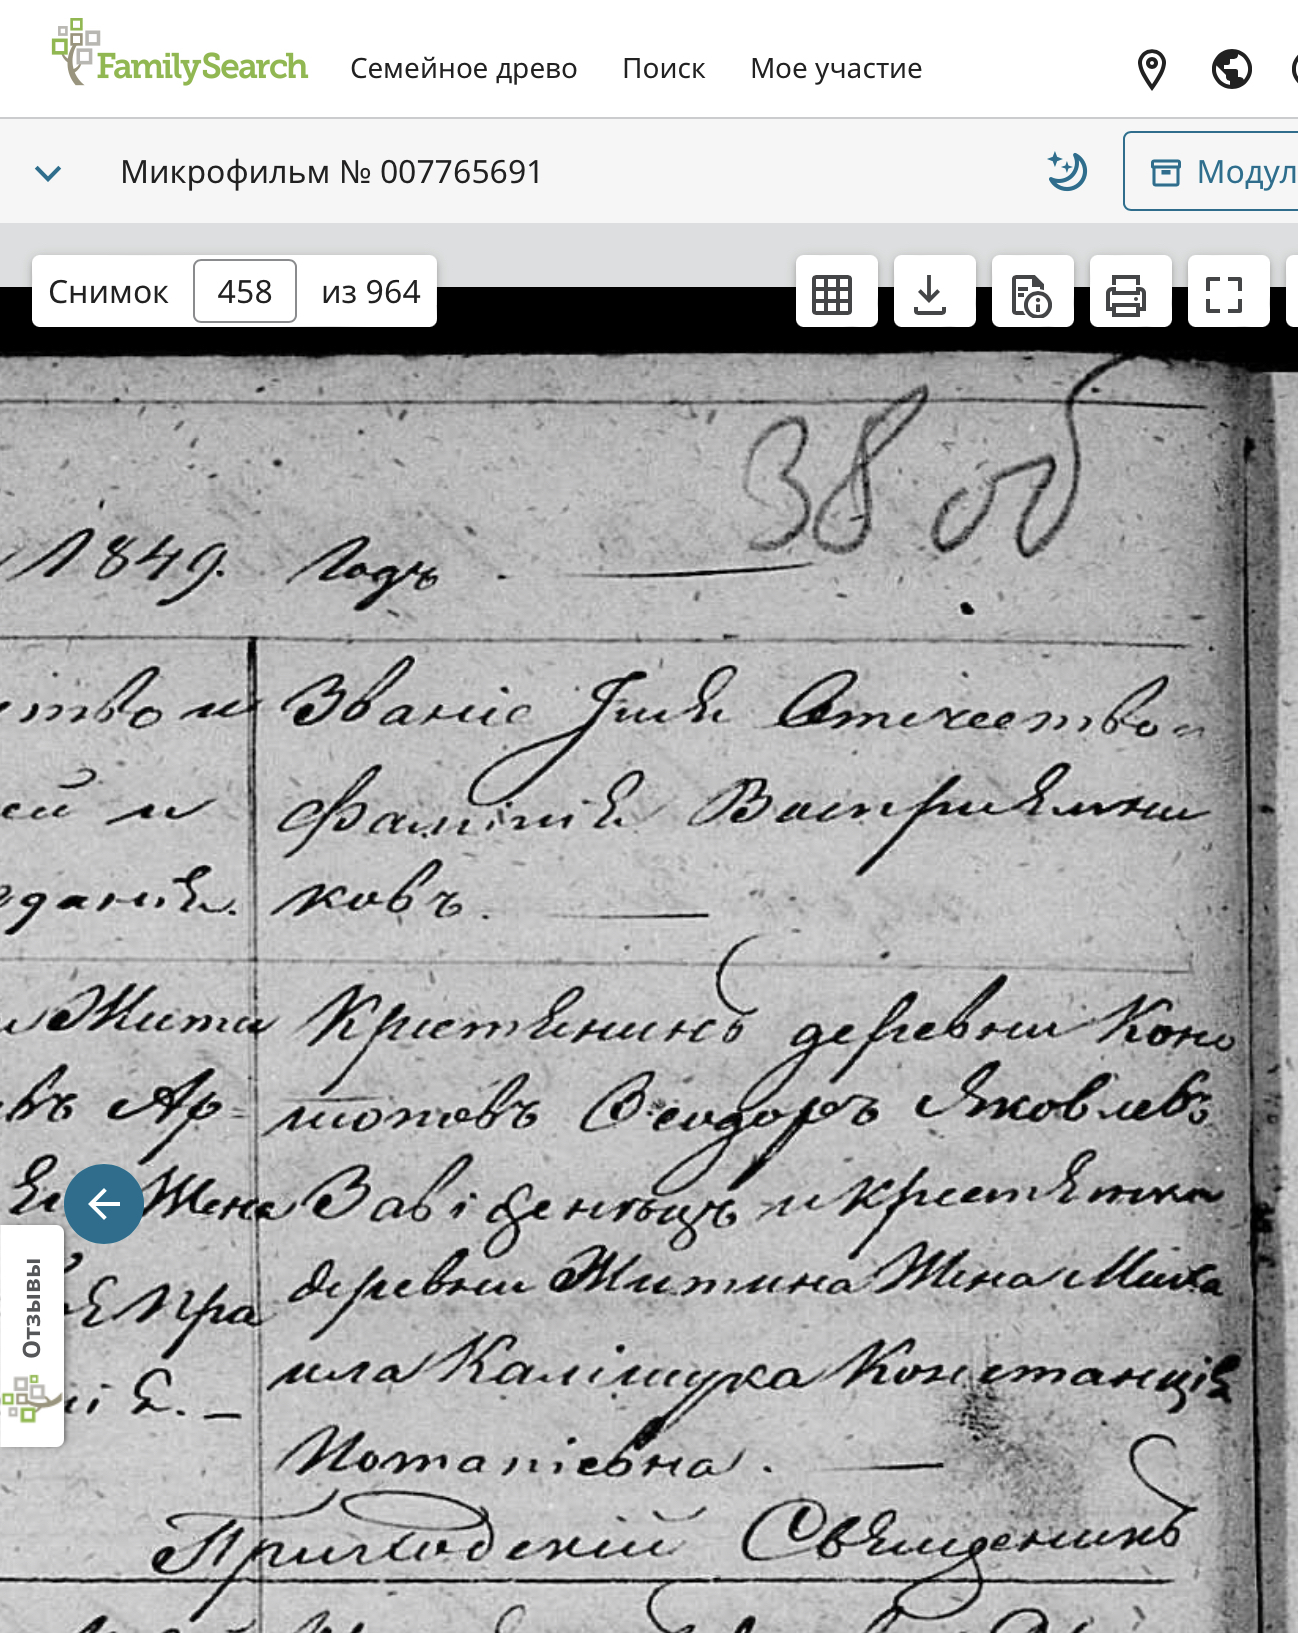 FamilySearch
Семейное древо Поиск Мое участие
Микрофильм № 007765691
Модул
Снимок 458 из 964
38 об
1849. Годъ.
ство и Званіе Імя Отечество и
ей и Фамілія Воспріямни
ковъ.
Жити Крестянинъ деревни Коно
въ Ар- топовъ Ѳеодоръ Яковлевъ
Жена и крестянка
деревни Житина Жена Миха
Пра ила Калішука Констанція
ія. Потапіевна.
Приходскій Священикъ
Отзывы